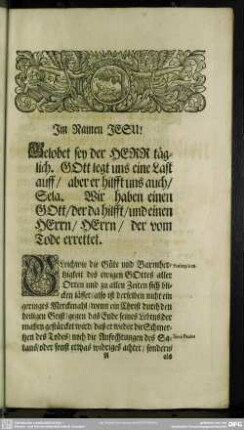 Im Namen JESU!
Gelobet sey der HERR täg-
lich. GOtt legt uns eine Last
auff/ aber er hilfft uns auch/
Sela. Wir haben einen
GOtt/ der da hilfft/ und einen
HErrn/ HErrn/ der vom
Tode errettet.
Gleichwie die Güte und Barmher-
tzigkeit des ewigen GOttes aller
Orten und zu allen Zeiten sich bli-
cken lässet/ also ist derselben nicht ein
geringes Merckmahl/ wenn ein Christ durch den
heiligen Geist/ gegen das Ende seines Lebens der
massen gestärcket wird/ daß er weder die Schmer-
tzen des Todes/ noch die Anfechtungen des Sa-
tans/ oder sonst etwas widriges achtet/ sondern
A als